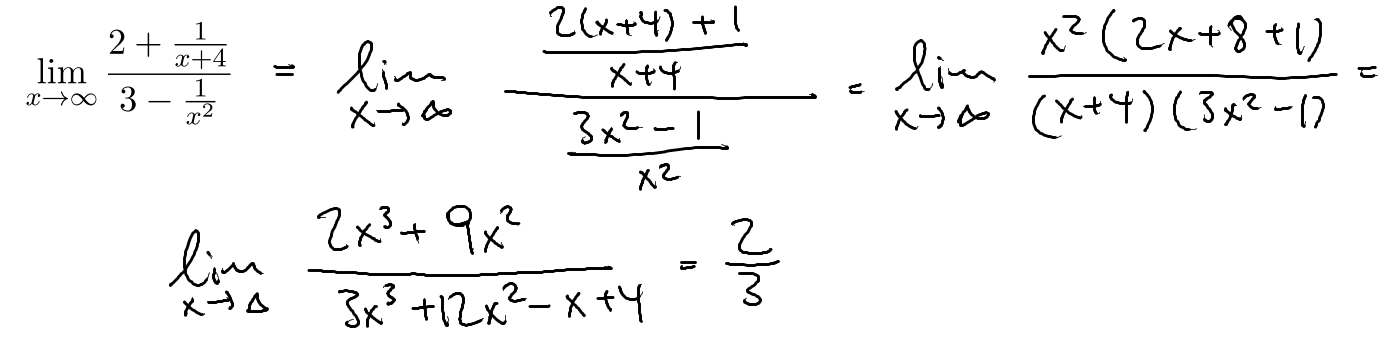 \lim_{x \to \infty} \frac{2 + \frac{1}{x+4}}{3 - \frac{1}{x^2}} = \lim_{x \to \infty} \frac{\frac{2(x+4)+1}{x+4}}{\frac{3x^2-1}{x^2}} = \lim_{x \to \infty} \frac{x^2(2x+8+1)}{(x+4)(3x^2-1)} =
\lim_{x \to \infty} \frac{2x^3+9x^2}{3x^3+12x^2-x+4} = \frac{2}{3}